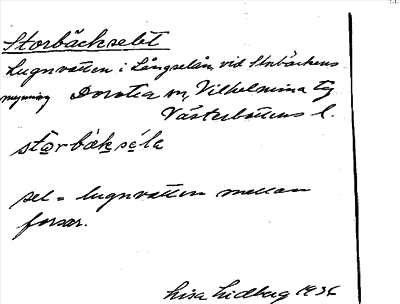 Storbäckselet
Lugnvatten i Långselån, vid Storbäckens
mynning Dorotea sn, Vilhelmina tg
Västerbottens l.
storbäkséla
sel = lugnvatten mellan
forsar.
Lisa Lidberg 1936